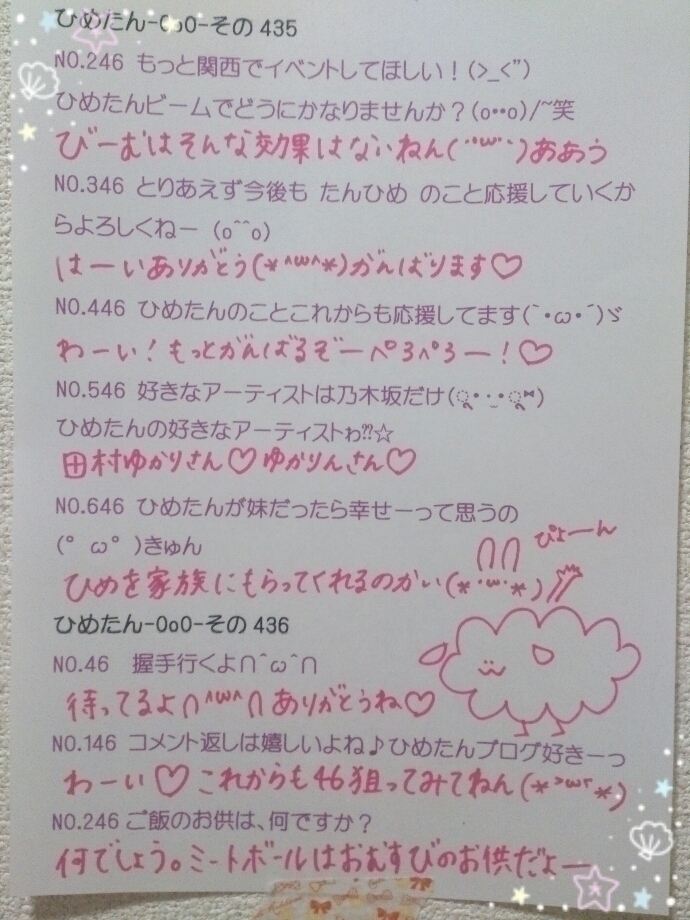 ひめたん-OoO-その435
NO.246 もっと関西でイベントしてほしい！(>_<")
ひめたんビームでどうにかなりませんか？(o••o)/~笑
びーむはそんな効果はないねん(´･ω･`)ああう
NO.346 とりあえず今後も たんひめ のこと応援していくか
らよろしくねー (o^^o)
はーいありがとう(*^ω^*)がんばります♡
NO.446 ひめたんのことこれからも応援してます(`･ω･´)ゞ
わーい！もっとがんばるぞーぺろぺろー！♡
NO.546 好きなアーティストは乃木坂だけ(ृ•·̫•ृ)
ひめたんの好きなアーティストゎ⁇☆
田村ゆかりさん♡ゆかりんさん♡
NO.646 ひめたんが妹だったら幸せーって思うの
(°ω°)きゅん
ぴょーん
ひめを家族にもらってくれるのかい(*･ω･*)
ひめたん-OoO-その436
NO.46 握手行くよ∩^ω^∩
待ってるよ∩^ω^∩ありがとうね♡
NO.146 コメント返しは嬉しいよね♪ひめたんブログ好きーっ
わーい♡これからも46狙ってみてねん(*>ω<*)
NO.246 ご飯のお供は、何ですか？
何でしょう。ミートボールはおむすびのお供だよー